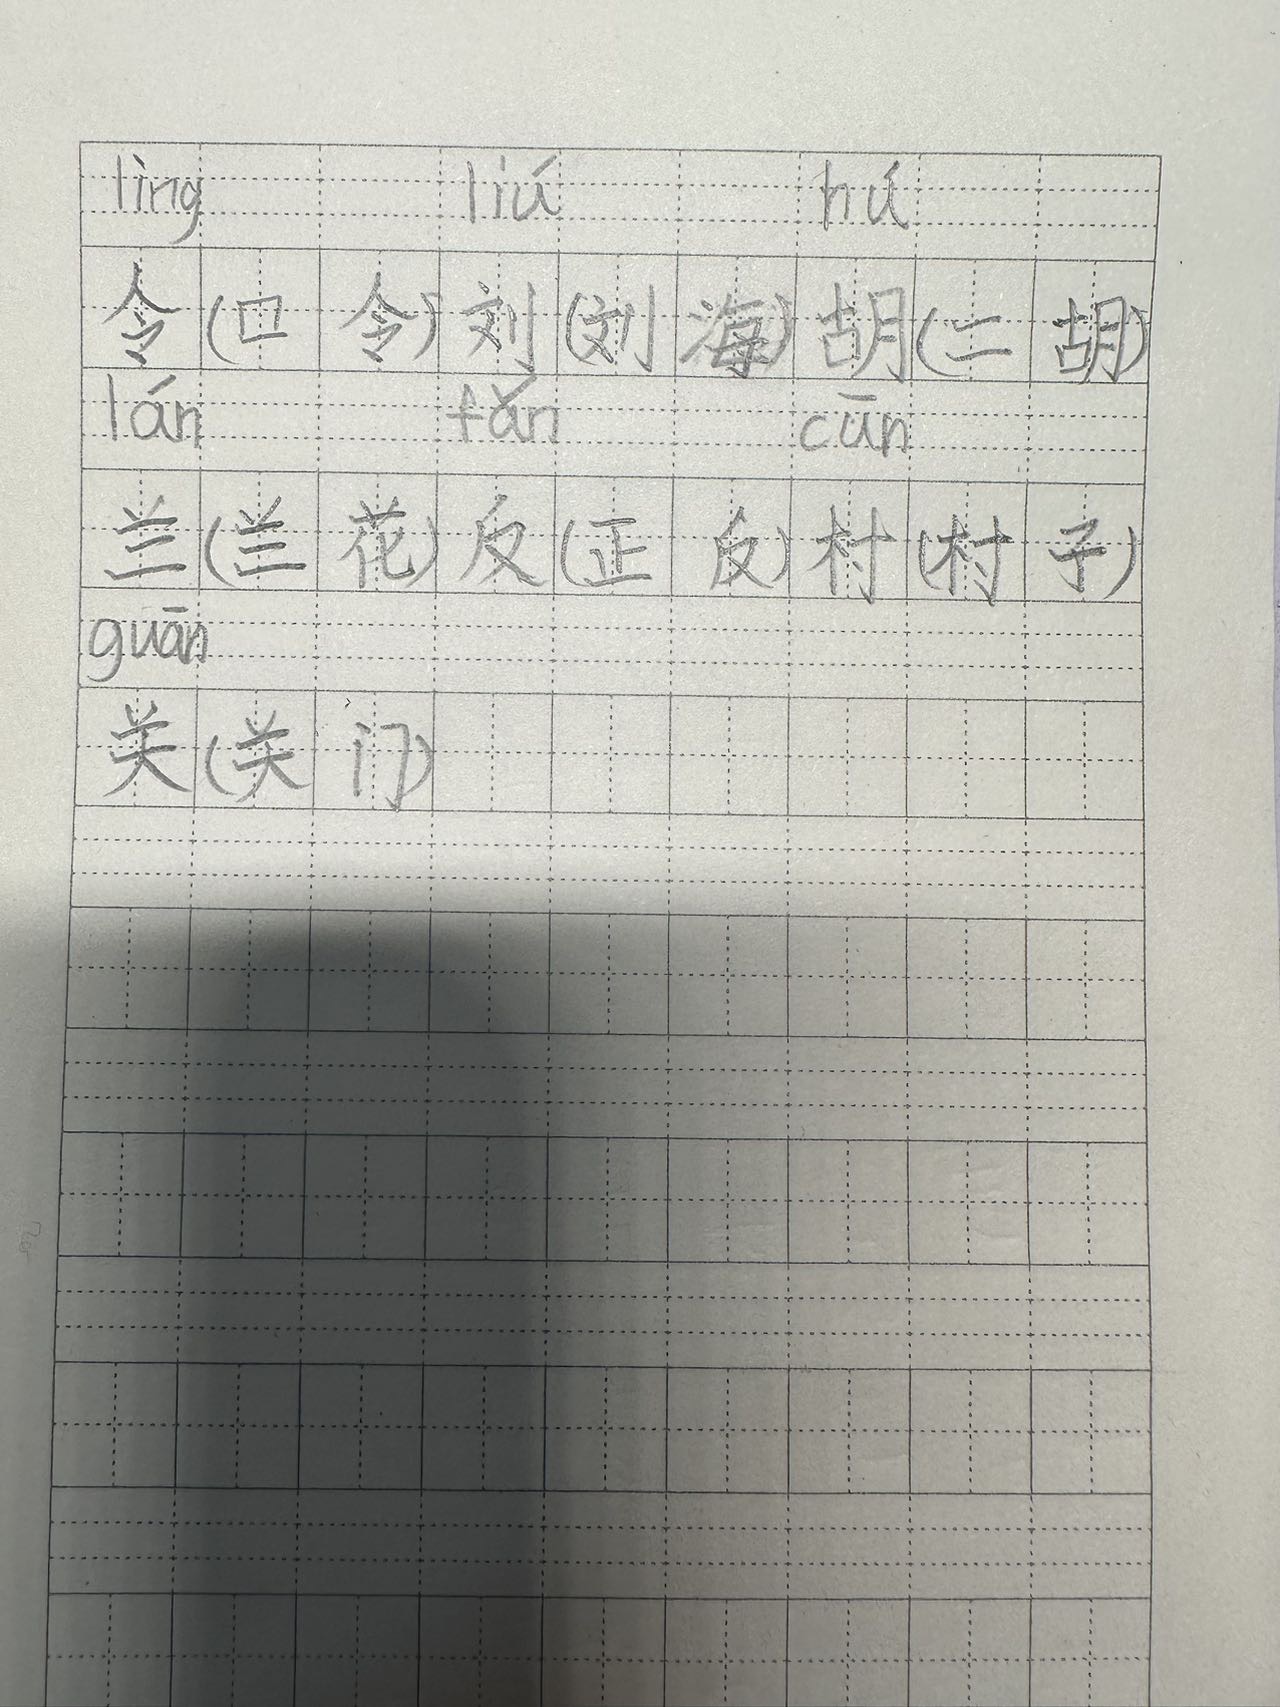 lìng liú hú
令(口令)刘(刘海)胡(二胡)
lán fǎn cūn
兰(兰花)反(正反)村(村子)
guān
关(关门)